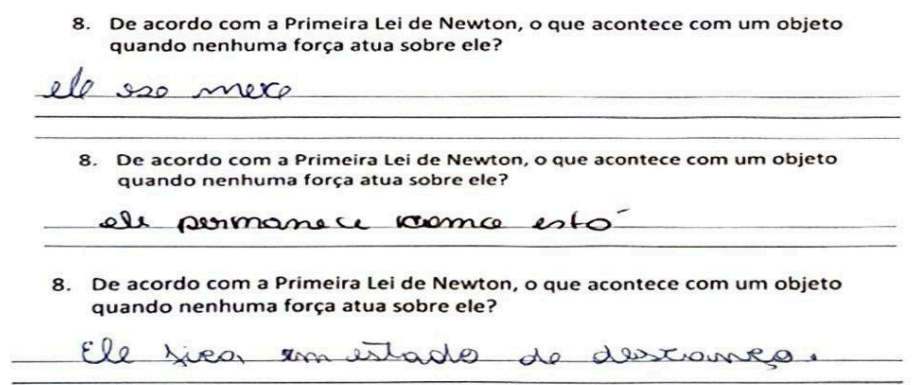 8. De acordo com a Primeira Lei de Newton, o que acontece com um objeto
quando nenhuma força atua sobre ele?
ele não mexe
8. De acordo com a Primeira Lei de Newton, o que acontece com um objeto
quando nenhuma força atua sobre ele?
ele permanece como está
8. De acordo com a Primeira Lei de Newton, o que acontece com um objeto
quando nenhuma força atua sobre ele?
Ele fica em estado de descanço.